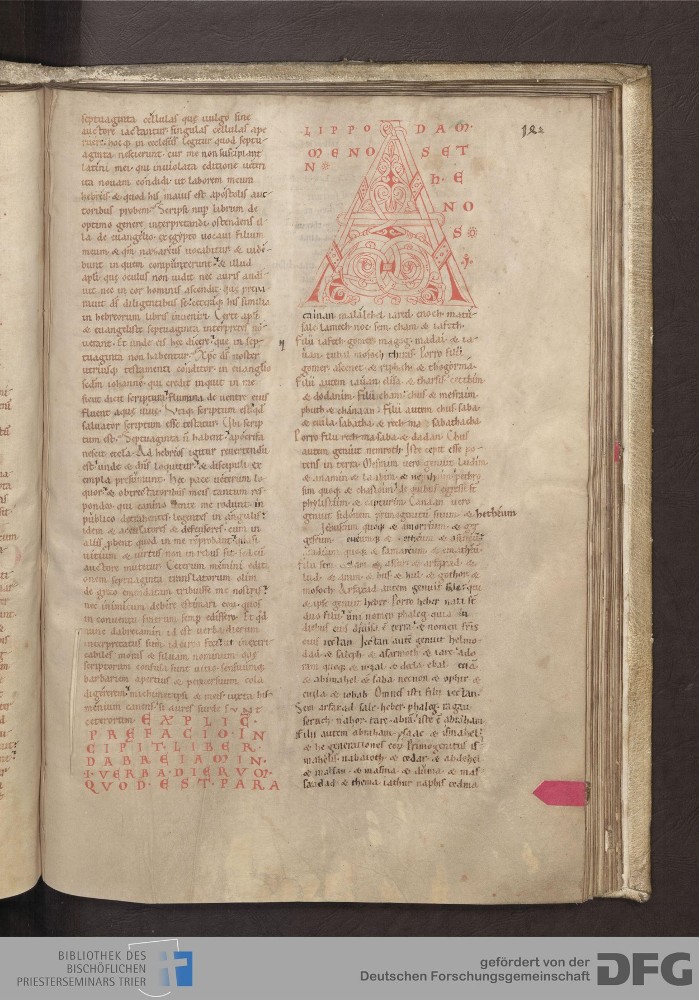 septuaginta cellulas que uulgo sine
auctore iactantur singulas cellulas ape
legitur quod septu
aginta nescierint cur me non suscipiant
latini mei qui inuiolata editione ueteri
ita nouam condidi ut laborem meum
hebreis & quod his maius est apostolis auc
toribus probem. Scripsi librum de
optimo genere interpretandi ostendens il
la de euangelio ex egypto uocaui filium
meum & nazareus uocabitur & uide
bunt in quem compunxerunt & illud
quod oculus non uidit nec auris audi
uit nec in cor hominis ascendit que prepa
rauit ds diligentibus se
in hebreorum libris inueniri. Certe
& euangeliste septuaginta interpretes no
uerant. Et unde eis hec dicere que in sep
tuaginta non habentur. ds noster
utriusque testamenti conditor in euanglio
qui credit inquit in me
sicut dicit scriptura flumina de uentre eius
fluent aque uiue. scriptum est quod
saluator scriptum esse testatur. Ubi scrip
tum est. Septuaginta habent apocrifa
nescit eccla. Ad hebreos igitur reuertendum
unde & dns loquitur & discipuli ex
empla presumunt. Hec pace ueterum lo
quor & obtrectatoribus meis tantum res
pondeo qui canino dente me rodunt in
publico detrahentes legentes in angulis
idem & accusatores & defensores cum in
aliis probent quod in me reprobant quasi
uitium & uirtus non in rebus sit sed cum
auctore mutetur. Ceterum memini edit
onem septuaginta translatorum olim
de greco emendatam tribuisse me nostris
nec inimicum debere estimari eorum quos
in conuentu fratrum semp edissero. Et qd
nunc dabreiamin id est uerba dierum
interpretatus sum idcirco feci ut inextri
cabiles moras & siluam nominum que
scriptorum confusa sunt uitio sensuumque
barbariem apertius & per uersuum cola
digererem & meis iuxta his
menium canens si aures surde SUNT
ceterorum. EXPLIC.
PREFACIO. IN
CIPIT. LIBER.
DABREIAMIN.
I. VERBA. DIERUM.
QUOD. EST. PARA
LIPPO
MENO
N
ADAM.
SET
H. E
NO
S
cainan malalehel iared enoch matu
sale lamech noe sem cham & iafeth.
Filii iafeth gomer magog madai & ia
uan tubal mosoch thiras Porro filii
gomer ascenez & riphath & thogorma.
Filii autem iauan elisa & tharsis cetthim
& dodanim. Filii cham chus & mesraim
phuth & chanaan. Filii autem chus saba
& euila sabatha & rechma & sabathacha
Porro filii rechma saba & dadan. Chus
autem genuit nemroth. Iste cepit esse po
tens in terra. Mesraim uero genuit ludim
& anamim & laabim & nepthuim phetru
sim quoque & chasluim de quibus egressi st
philistiim & capturim. Canaan uero
genuit sidonem primogenitum suum & hetheum
Iebuseum quoque & amorreum & ger
geseum eueumque & & asineum
aradium quoque & samareum & ematheum
Filii sem elam & assur & arfaxad &
lud & aram & hus & hul & gothor &
mosoch. Arfaxad autem genuit sale qui
& ipse genuit heber. Porro heber nati st
duo filii uni nomen phaleg quia in
diebus eius diuisa e terra & nomen fris
eius iectan. Iectan aute genuit helmo
dad & saleph & asarmoth & iare ado
ram quoque & uzal & decla ebal
& abimahel & saba necnon & ophir &
euila & iobab. Omnes isti filii iectan.
Sem arfaxad sale heber phaleg ragau
seruch nahor tare abra iste e abraham.
Filii autem abraham ysaac & ismahel
& he generationes eoru. Primogenitus is
mahelis nabaioth & cedar & abdehel
& mabsan & masma & duma & mas
sa adad & thema iathur naphis cedma.
BIBLIOTHEK DES
BISCHÖFLICHEN
PRIESTERSEMINARS TRIER
gefördert von der
Deutschen Forschungsgemeinschaft
DFG